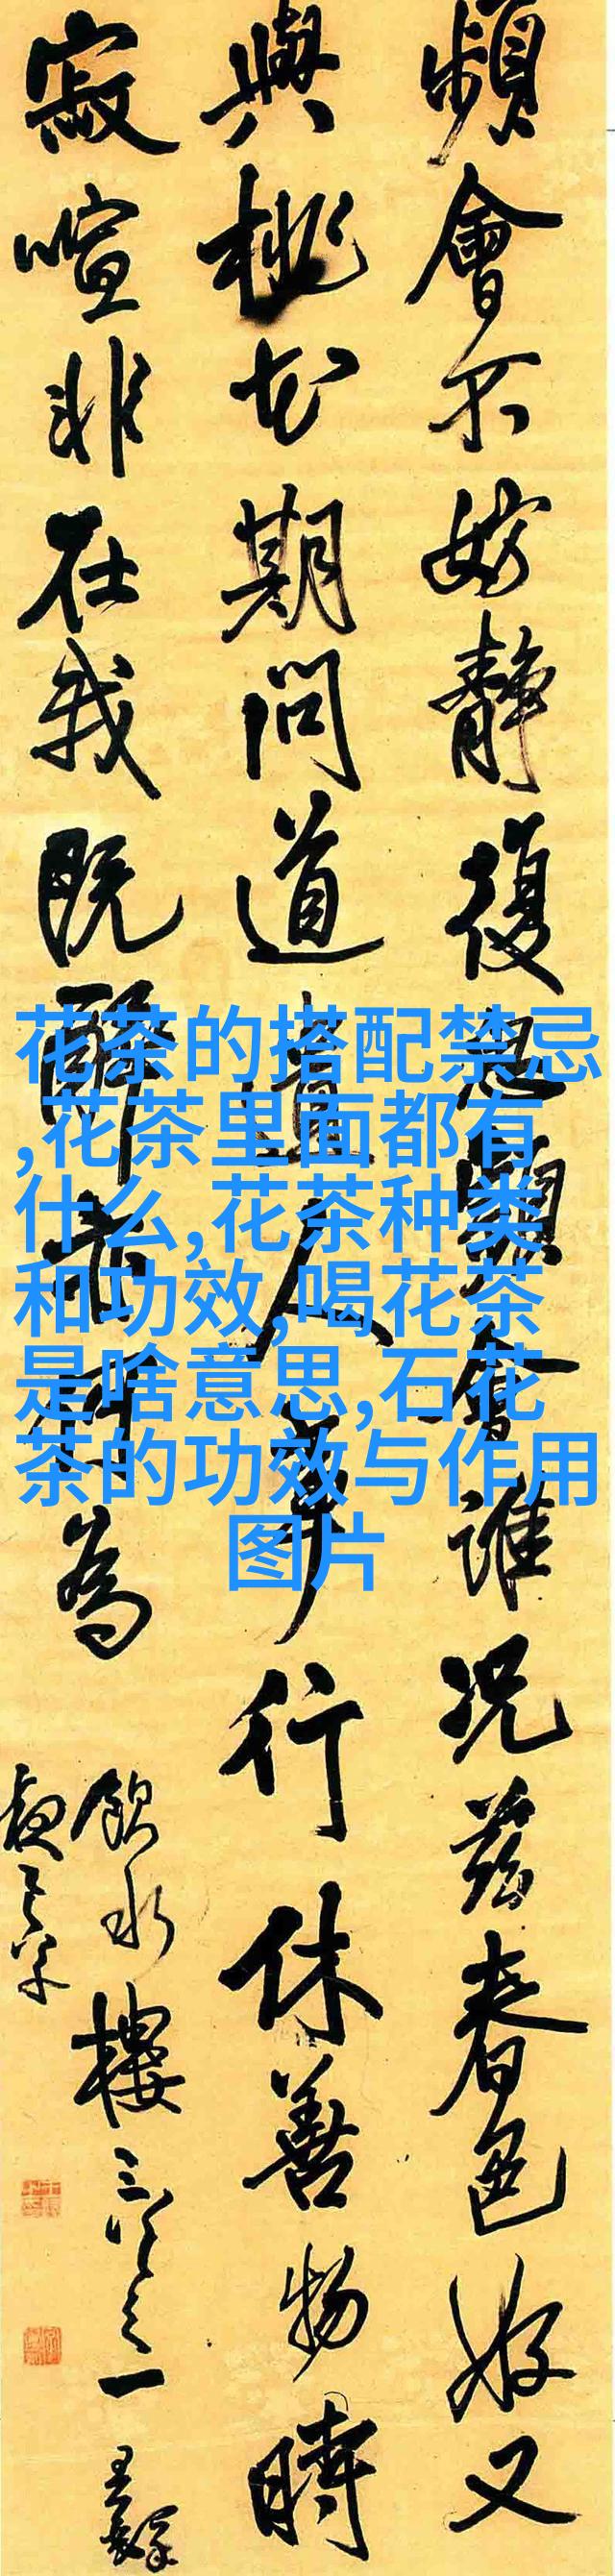 頻會不妨靜復思頻會誰況茲春色好又
與桃花期問道遺人行休善物時
寂喧非在我既醉亦何為
樓三之一
花茶的搭配禁忌
,花茶里面都有
什么,花茶种类
和功效,喝花茶
是啥意思,石花
茶的功效与作用
图片